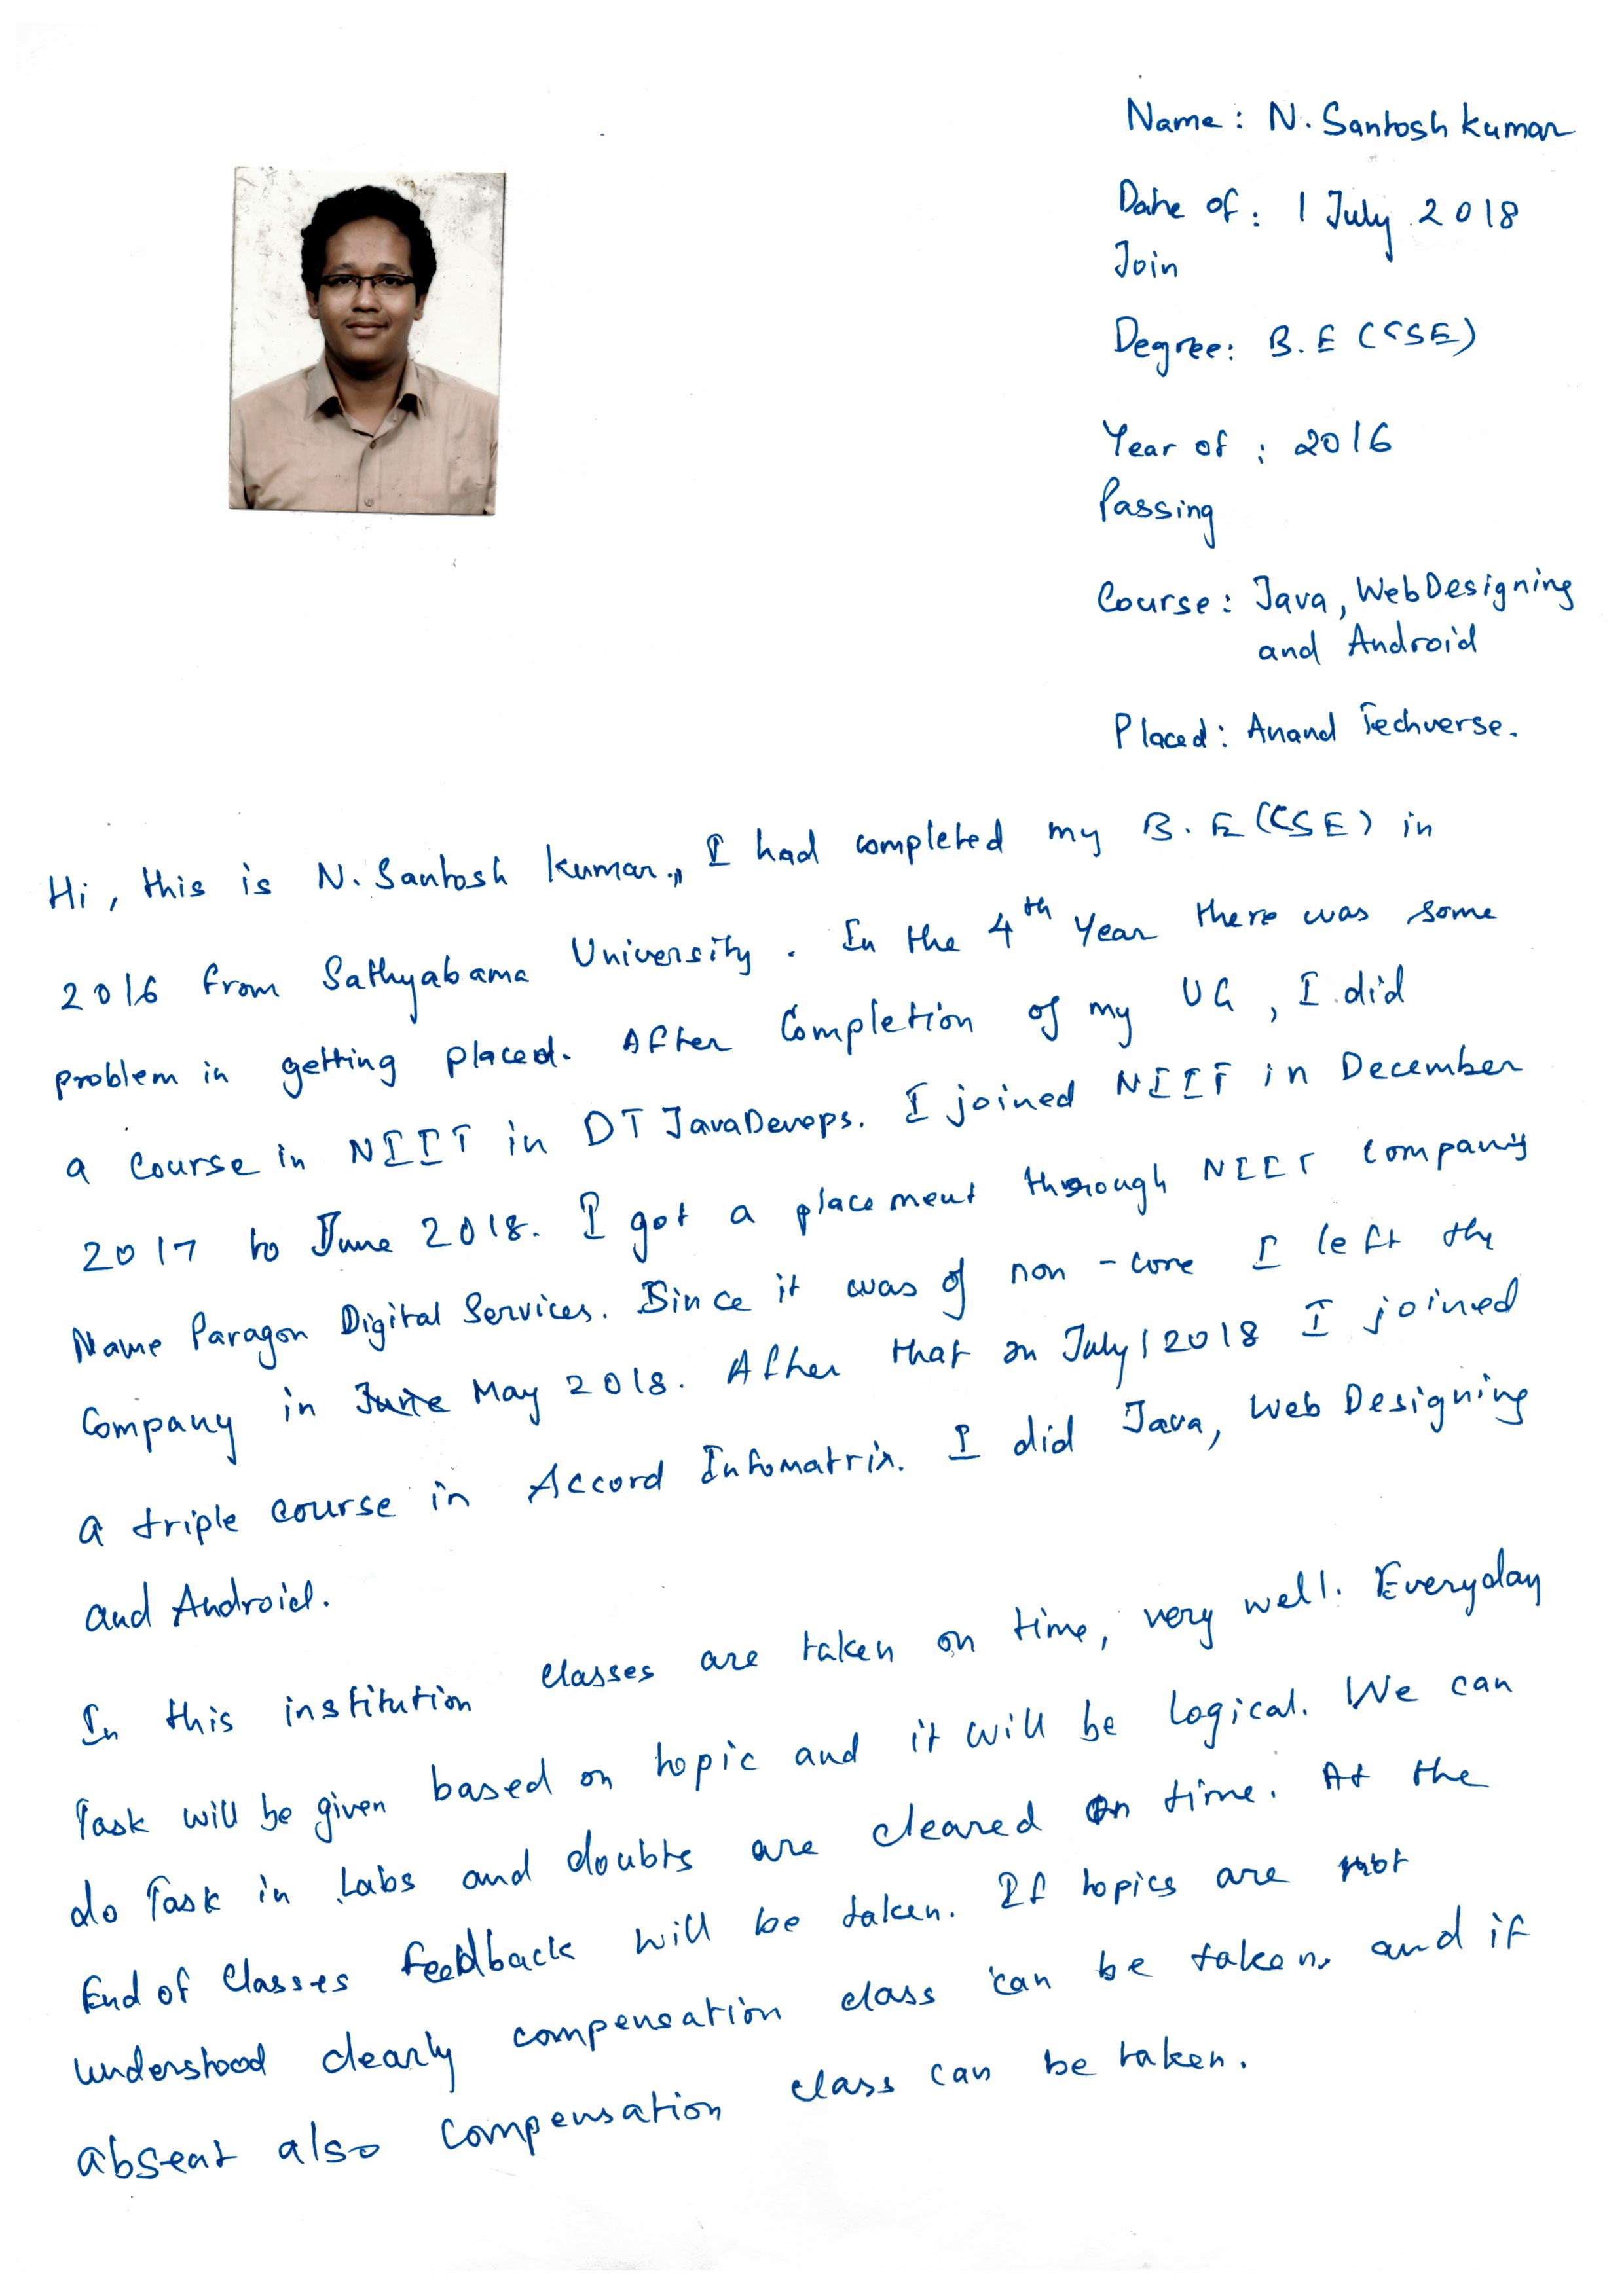 Name: N. Santosh kumar
Date of: 1 July 2018
Join
Degree: B.E (CSE)
Year of : 2016
Passing
Course: Java, WebDesigning
and Android
Placed: Anand Techverse.
Hi, this is N. Santosh kumar., I had completed my B.E (CSE) in
2016 from Sathyabama University. In the 4th Year there was some
problem in getting placed. After Completion of my UG, I did
a Course in NIIT in DT JavaDevops. I joined NIIT in December
2017 to June 2018. I got a placement through NIIT Company
Name Paragon Digital Services. Since it was of non-core I left the
Company in May 2018. After that on July 1 2018 I joined
a triple course in Accord Infomatrix. I did Java, Web Designing
and Android.
In this institution classes are taken on time, very well. Everyday
Task will be given based on topic and it will be logical. We can
do Task in Labs and doubts are cleared on time. At the
End of Classes feedback will be taken. If topics are not
understood clearly compensation class can be taken, and if
absent also Compensation class can be taken.